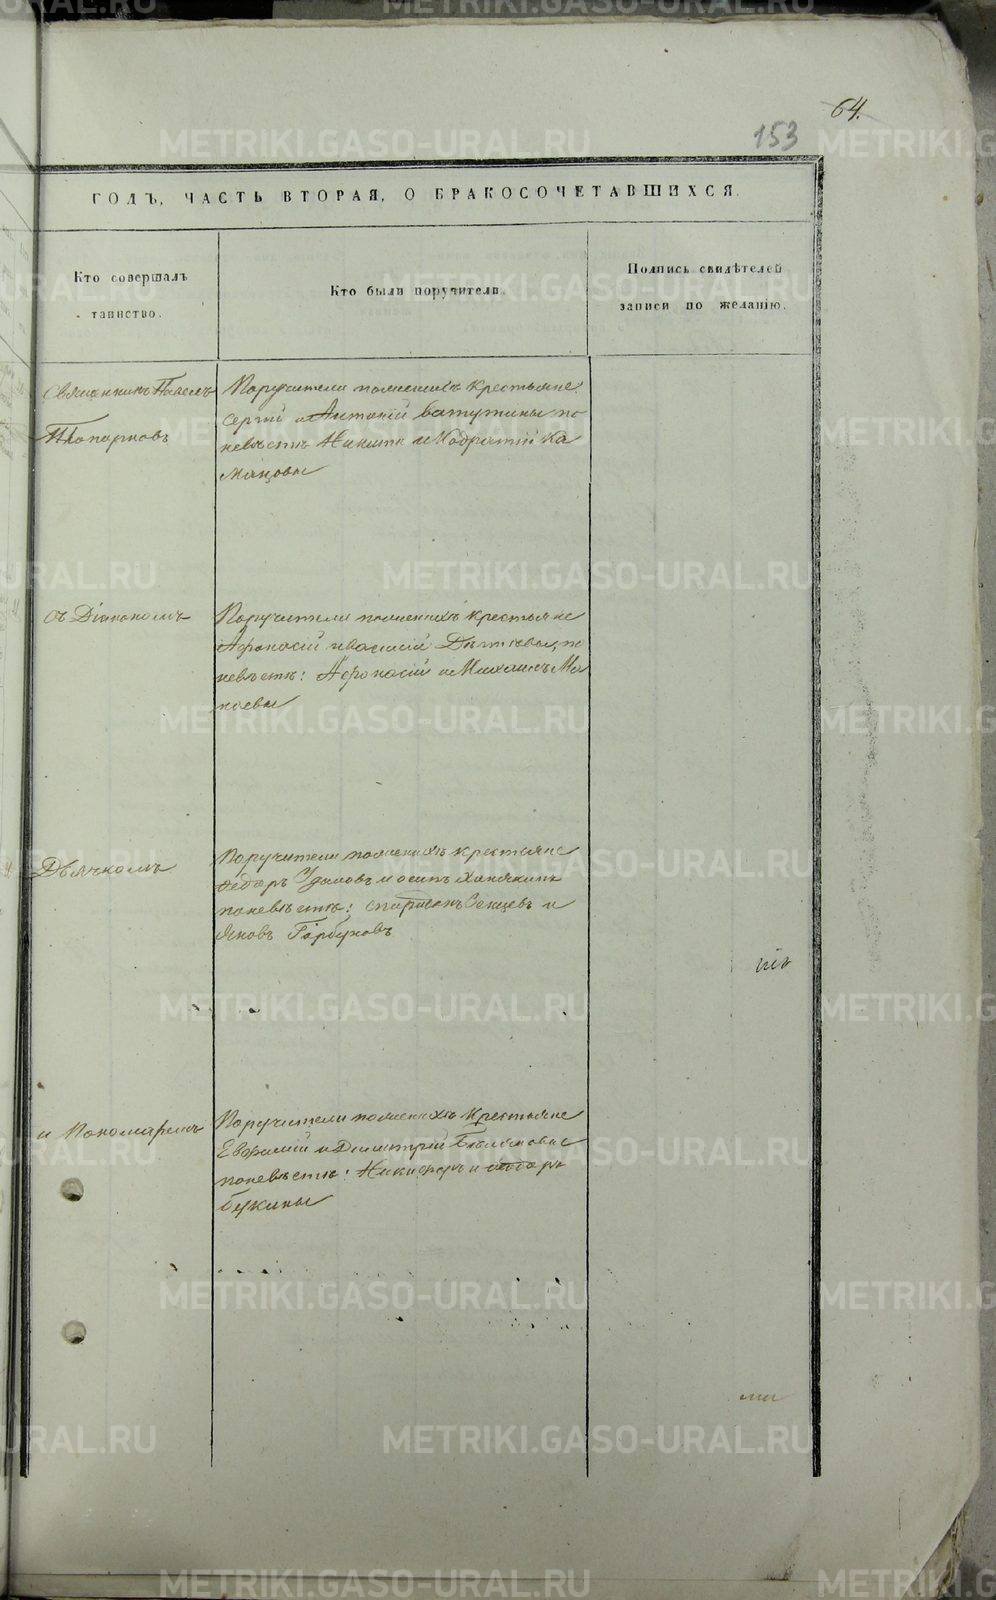 64.
153
ГОДЪ, ЧАСТЬ ВТОРАЯ, О БРАКОСОЧЕТАВШИХСЯ.
Кто совершалъ
таинство.
Кто были поручители.
Подпись свидѣтелей
записи по желанію.
Священникъ Павелъ
Топорковъ
Поручители крестьяне
Сергій и Антоній Ватутины по
невѣстѣ Никита и Кодратій Ка
манцовы
съ Діакономъ
Поручители крестьяне
Афонасій и Василій по
невѣстѣ: Афонасій и Михаилъ Ма
каевы
Дьячкомъ
Поручители крестьяне
Федоръ и осипъ
поневѣстѣ: и
Яковъ Горбуновъ
и Пономаремъ
Поручители крестьяне
и Димитрій
поневѣстѣ: Никифоръ и Федоръ
Букины
METRIKI.GASO-URAL.RU